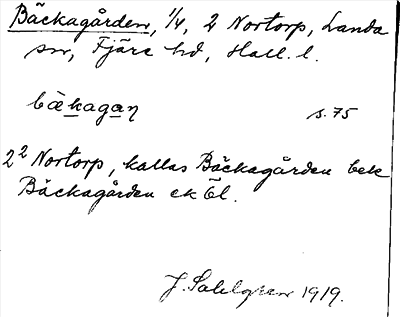 Bäckagården, 1/4, 2 Nortorp, Landa
sn, Fjäre hd, Hall. l.
bæ̀kagaṇ s. 75
2² Nortorp, kallas Bäckagården bek
Bäckagården ek Öl.
J. Sahlgren 1919.